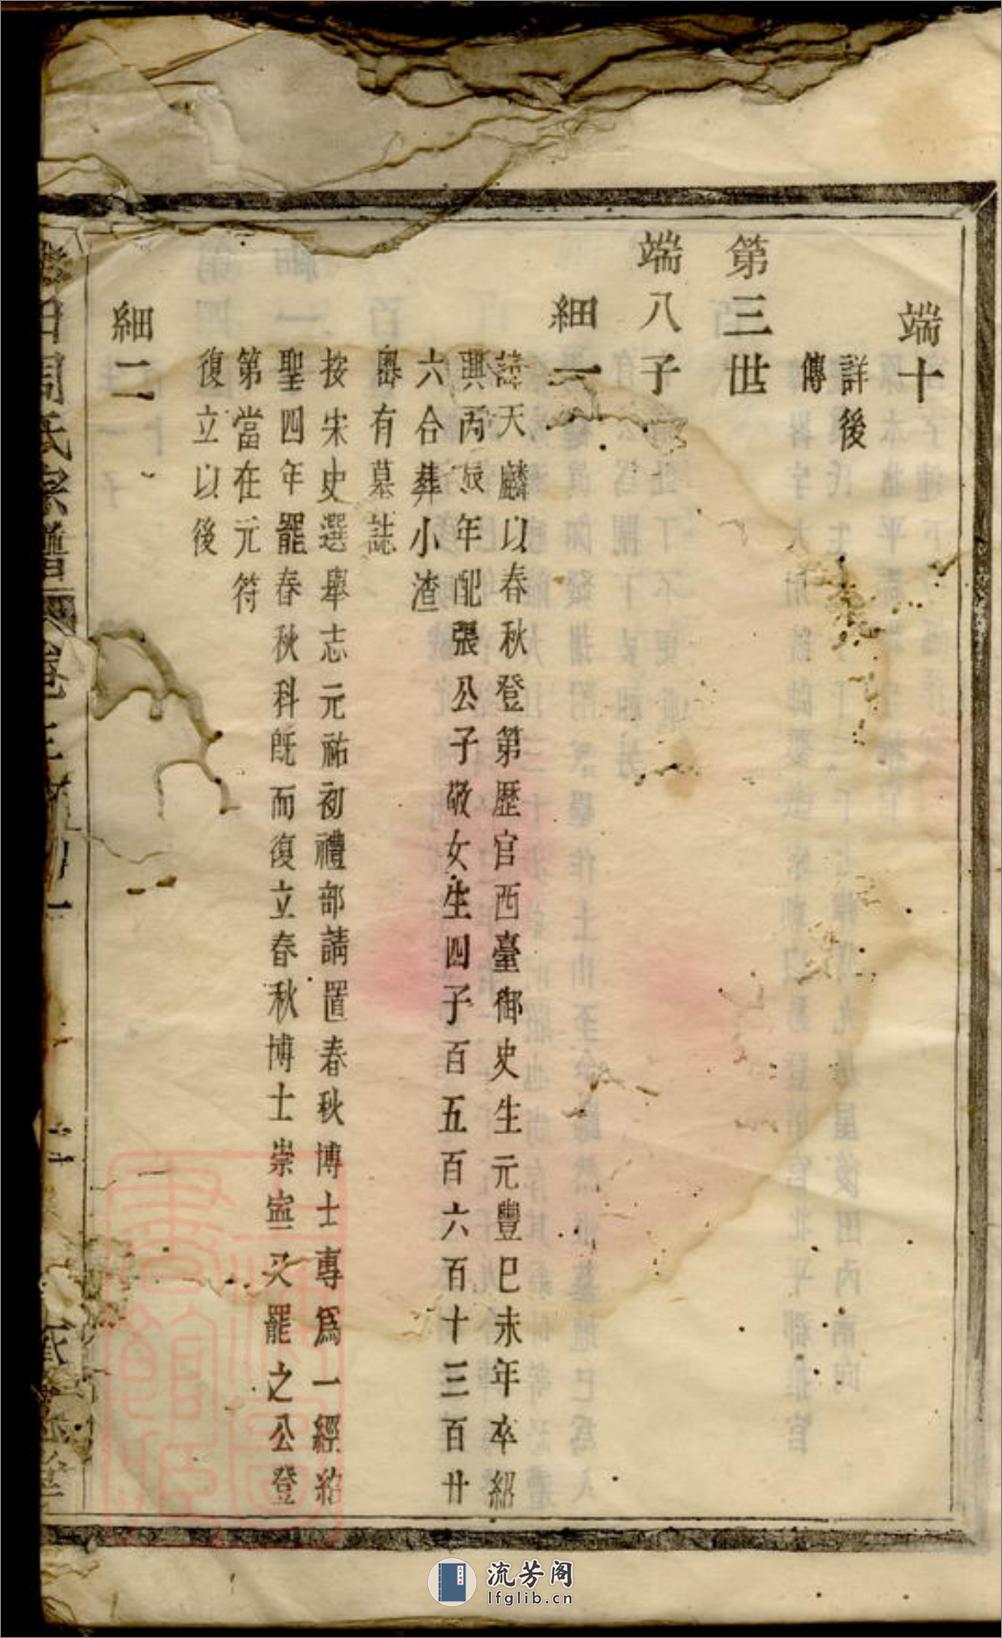 端十
詳後
傳
第三世
端八子
細一
諱天麟以春秋登第歷官西臺御史生元豐巳未年卒紹
興丙辰年配張公子敬女生四子百五百六百十三百廿
六合葬小渣
嶴有墓誌
按宋史選舉志元祐初禮部請置春秋博士專爲一經紹
聖四年罷春秋科旣而復立春秋博士崇寧又罷之公登
第當在元符
復立以後
細二
周氏宗譜
流芳阁
lfglib.cn